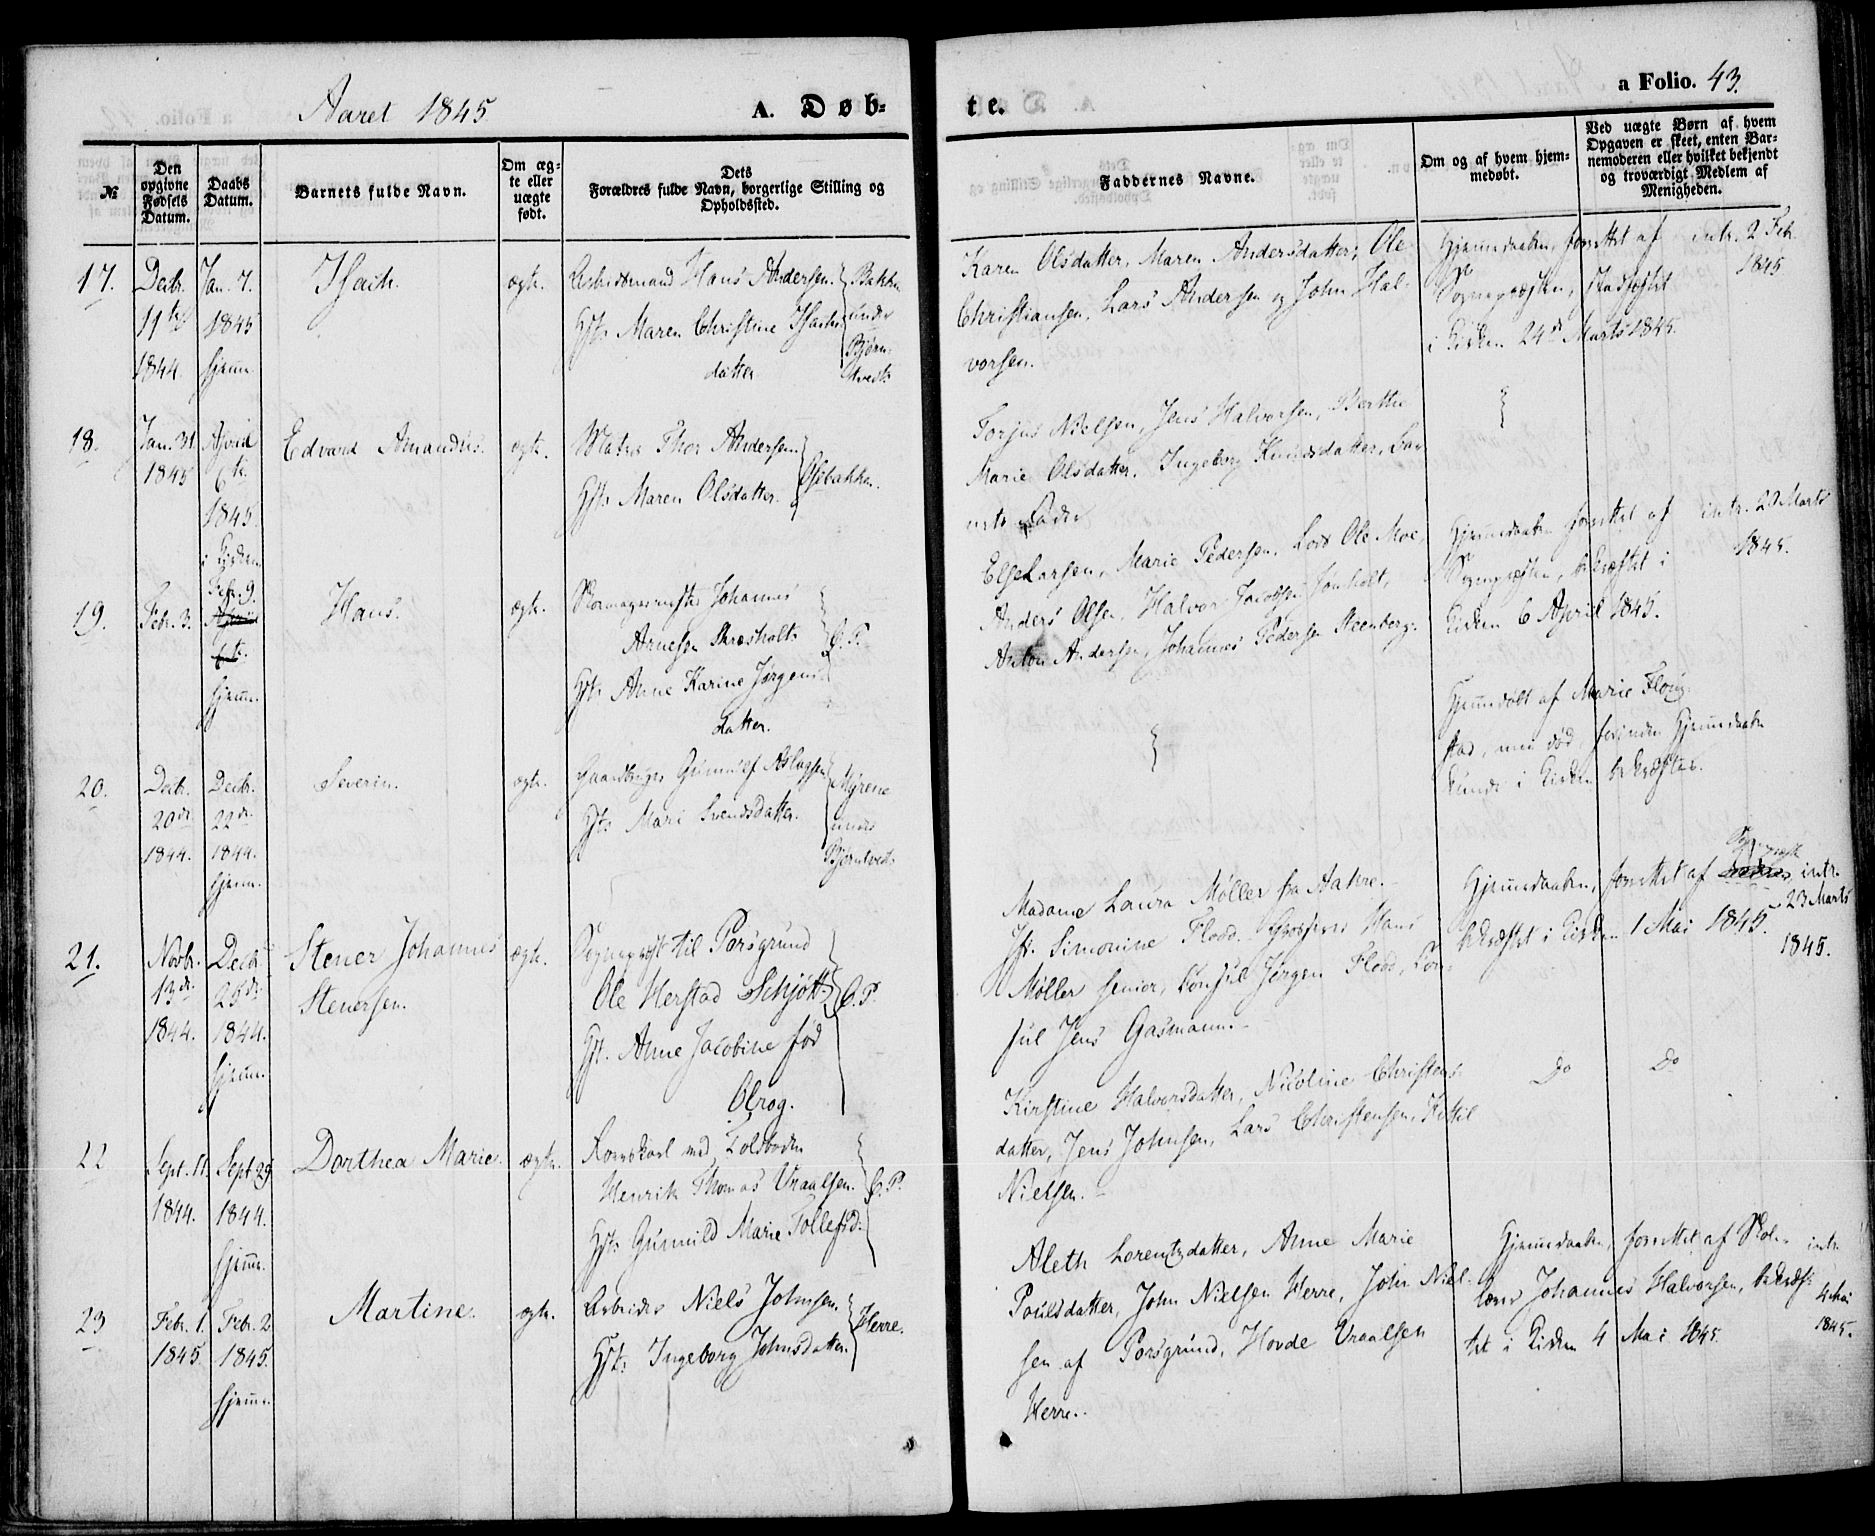 Aaret 1845
A. Døb-
te.
a Folio. 43.
№
Den opgivne Fødsels Datum.
Daabs Datum.
Barnets fulde Navn.
Om ægte eller uægte født.
Dets Forældres fulde Navn, borgerlige Stilling og Opholdssted.
Faddernes Navne.
Om og af hvem hjemmedøbt.
Ved uægte Børn af hvem Opgaven er skeet, enten Barnemoderen eller hvilket bekjendt og troværdigt Medlem af Menigheden.
17.
Decbr.
11te
1844.
Jan. 7.
1845
hjem.
Isach.
ægte.
Arbeidsmand Hans Andersen.
Hst. Maren Christine Isachs
datter
Bakken
under
Bjørn-
tvedt
Karen Olsdatter, Maren Andersdatter, Ole
Christiansen, Lars Andersen og John Hal-
vorsen.
Hjemmedaaben, forrettet af
Sognepræsten, stadfæstet
i Kirken 24de Marts 1845.
intr. 2 Feb.
1845
18.
Jan. 31
1845
April
6te
1845.
i Kirken
Edvard Amandus.
ægte.
Matros Thor Andersen
Hst. Maren Olsdatter.
Osebakken.
Torjus Nielsen, Jens Halvorsen, Berthe
Marie Olsdatter, Ingeborg Knudsdatter, Bar-
nets Fader
19.
Febr. 3.
Febr. 9.
April
6te.
hjem.
Hans.
ægte.
Skomagermester Johannes
Arnesen
Hst. Anne Karine Jørgens
datter.
P.
Else Larsen, Marie Pedersen, Lods Ole Moe,
Anders Olsen, Halvor Jacobsen Jonholt,
Anton Andersen, Johannes Pedersen Steenberg.
Hjemmedaaben forrettet af
Sognepræsten, bekræftet i
Kirken 6 April 1845.
intr. 22 Marts
1845.
20.
Decbr.
20de
1844.
Decbr.
22de.
1844.
hjem.
Severin.
ægte.
Gaardbruger Gunnulf Aslagsen
Hst. Mari Svendsdatter.
Myrene
under
Bjørntvedt
Hjemmedøbt af Marie Floug-
stad, men død, forinden Hjemmedaaben
kunde i Kirken bekræftes.
21.
Novbr.
13de.
1844.
Decbr.
25de
1844.
hjem.
Stener Johannes
Stenersen.
ægte.
Sognepræst til Porsgrund
Ole Herstad Schjøtt
Hst. Anne Jacobine fød
Olrog.
P.
Madame Laura Møller fra Aahre.
Jfr. Simonine Flood. Grosserer Hans
Møller senior, Consul Jørgen Flood, Con-
sul Jens Gasmann.
Hjemmedaaben, forrettet af Sognepræst
bekræftet i Kirken 1 Mai 1845.
intr.
23 Marts
1845.
22
Sept. 11.
1844.
Sept 29.
1844.
hjem.
Dorthea Marie.
ægte.
Rorskarl ved Toldboden
Henrik Thomas Vraalsen.
Hst. Gunnild Marie Tollefsd.
P.
Kirstine Halvorsdatter, Nicoline Christens-
datter, Jens Johnsen, Lars Christensen, Kittil
Nielsen.
Do
Do
23
Febr. 1.
1845.
Febr. 2
1845.
hjem.
Martine.
ægte.
Arbeider Niels Johnsen.
Hst. Ingeborg Johnsdatter.
Herre.
Aleth Lorentzdatter, Anne Marie
Poulsdatter, John Nielsen Herre, John Niel-
sen af Porsgrund, Hovde Vraalsen
Herre.
Hjemmedaaben, forrettet af Skole-
lærer Johannes Halvorsen, bekræf-
tet i Kirken 4 Mai 1845.
intr.
4 Mai
1845.